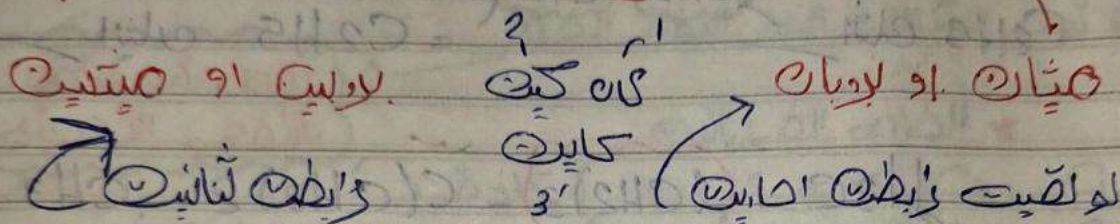 2 1
ميثان او بروبان كان كين بروبين او
كاين
لو لقيت رابطة احادية 3 رابطة ثنائية